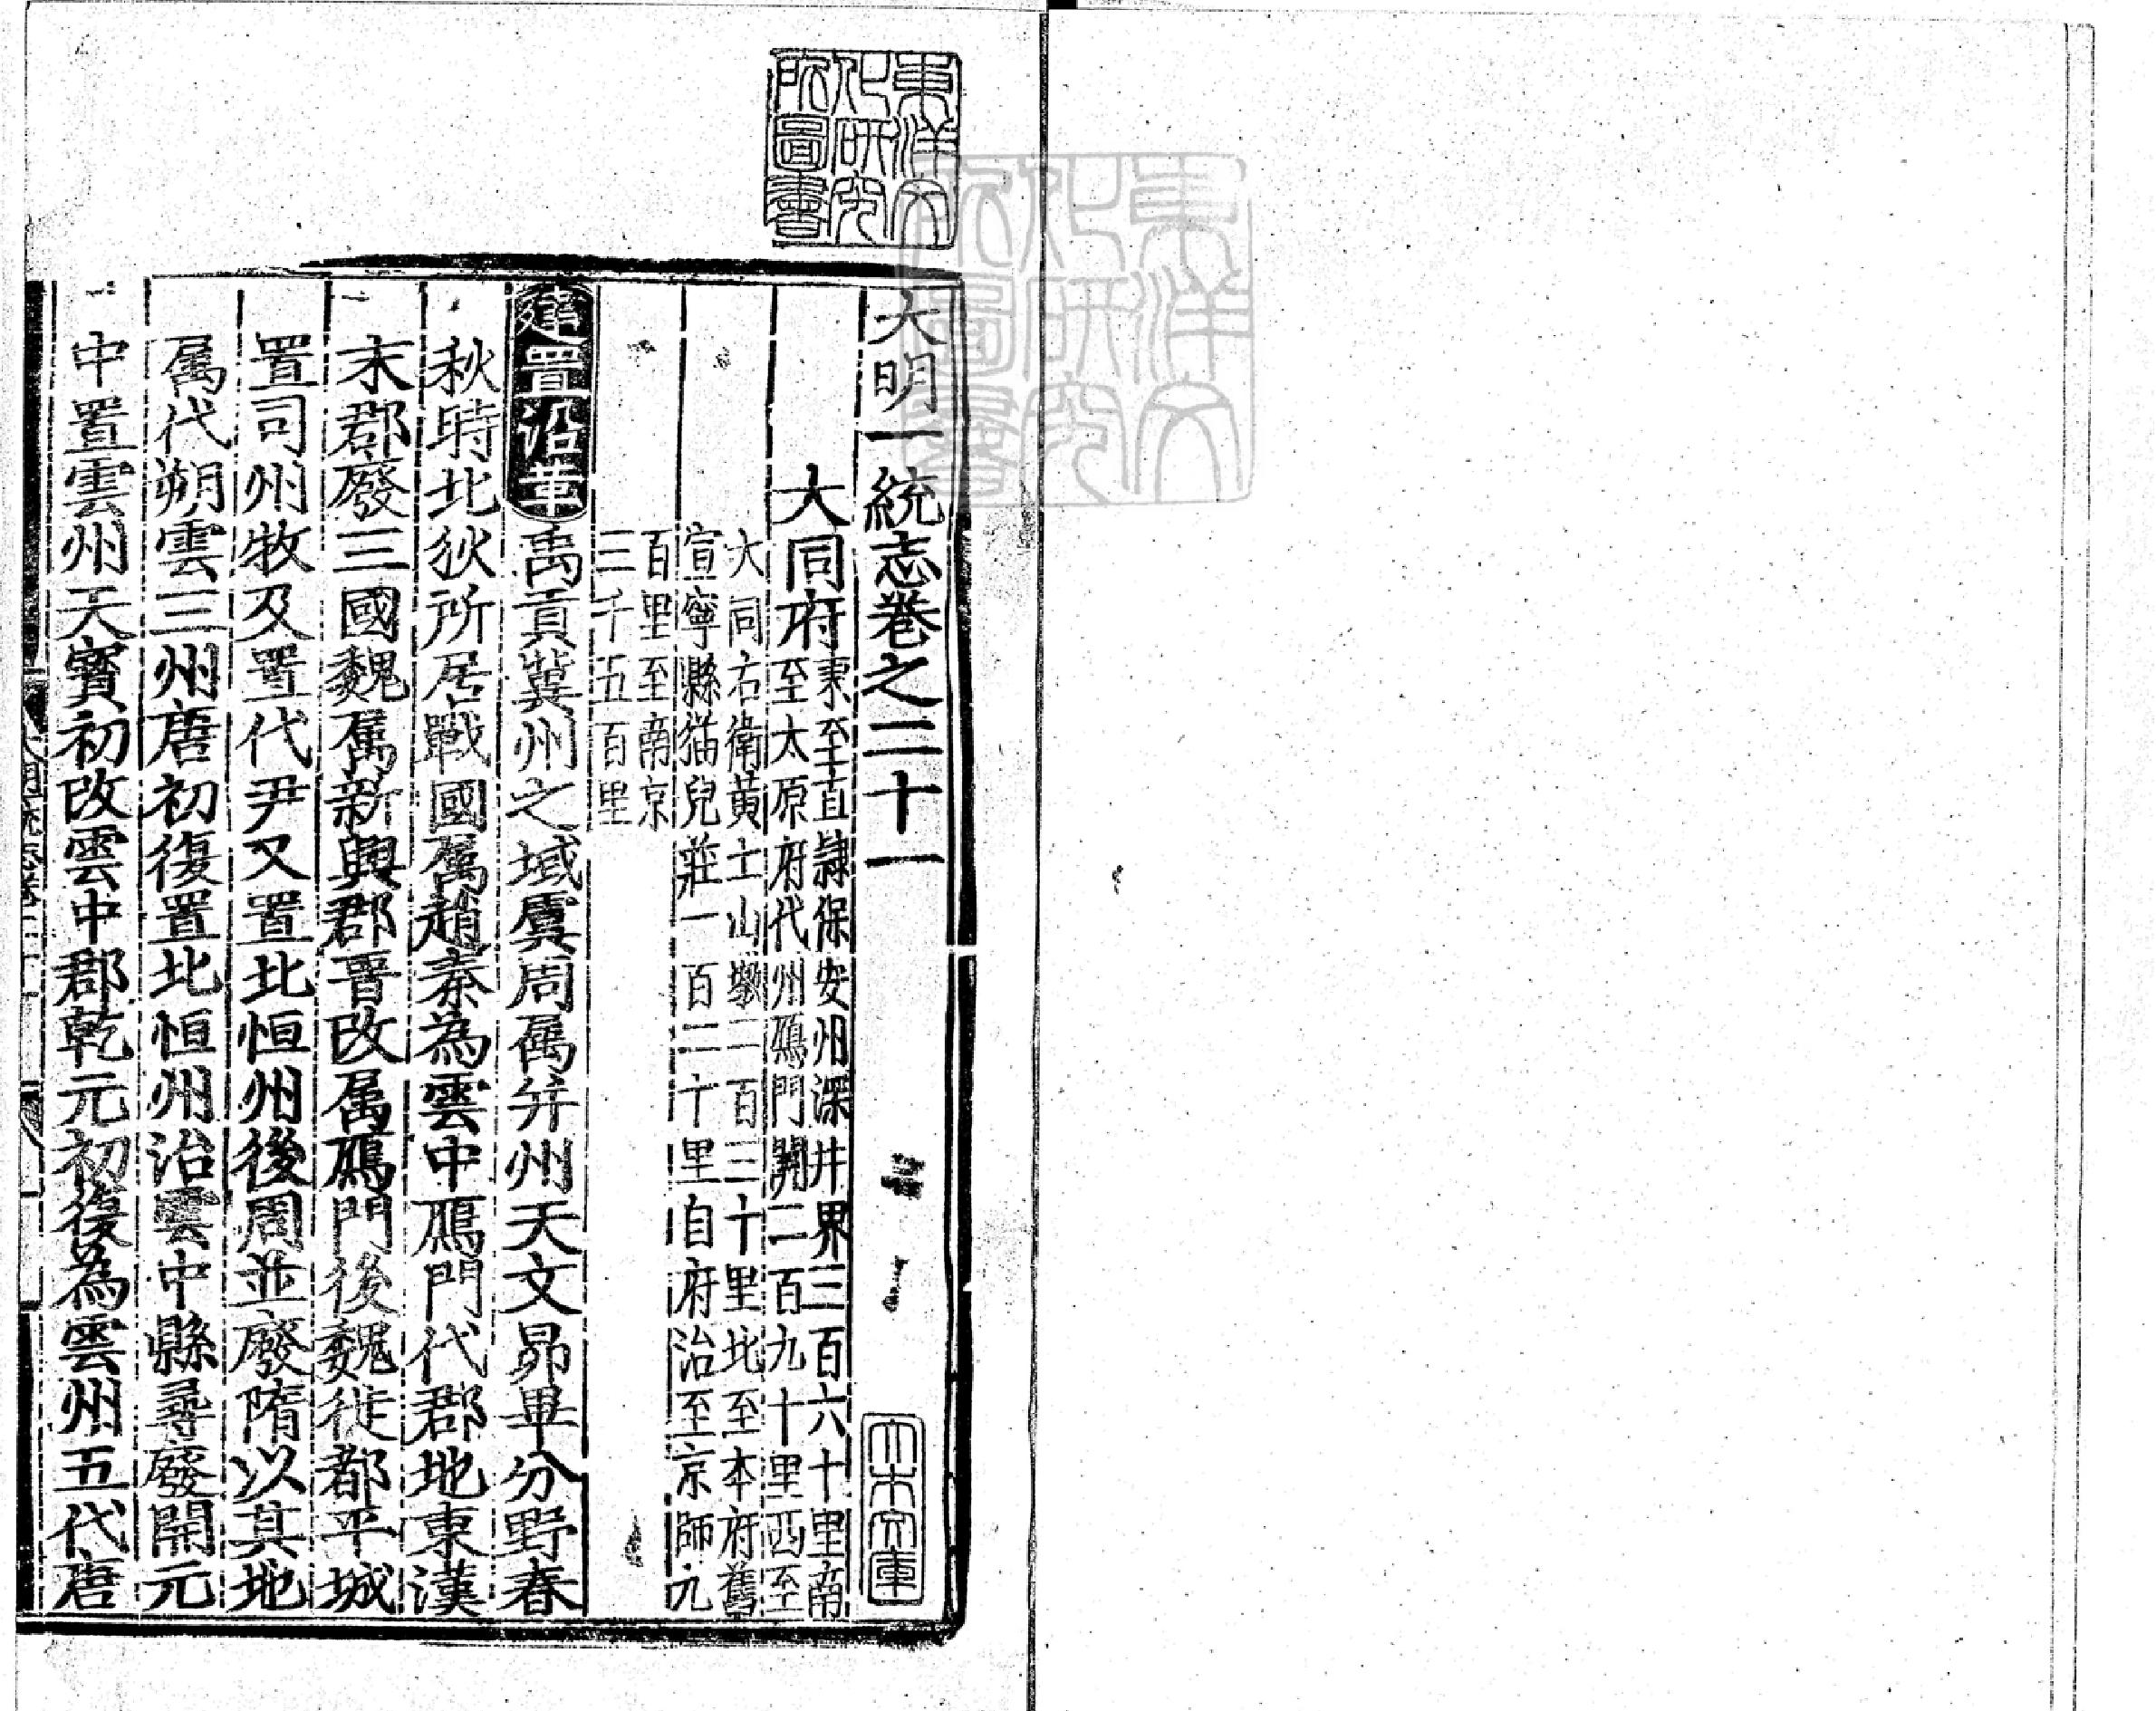 東洋文
化研究
所圖書
大明一統志卷之二十一
大木文庫
大同府東至直隸保安州深井界三百六十里南
至太原府代州鴈門關二百九十里西至
大同右衛黄土山墩二百三十里北至本府舊
宣寧縣猫兒莊一百二十里自府治至京師九
百里至南京
三千五百里
建置沿革禹貢冀州之域虞周属并州天文昴畢分野春
秋時北狄所居戰國属趙秦為雲中鴈門代郡地東漢
末郡廢三國魏属新興郡晉改属鴈門後魏徙都平城
置司州牧及置代尹又置北恒州後周並廢隋以其地
属代朔雲三州唐初復置北恒州治雲中縣尋廢開元
中置雲州天寶初改雲中郡乾元初復為雲州五代唐